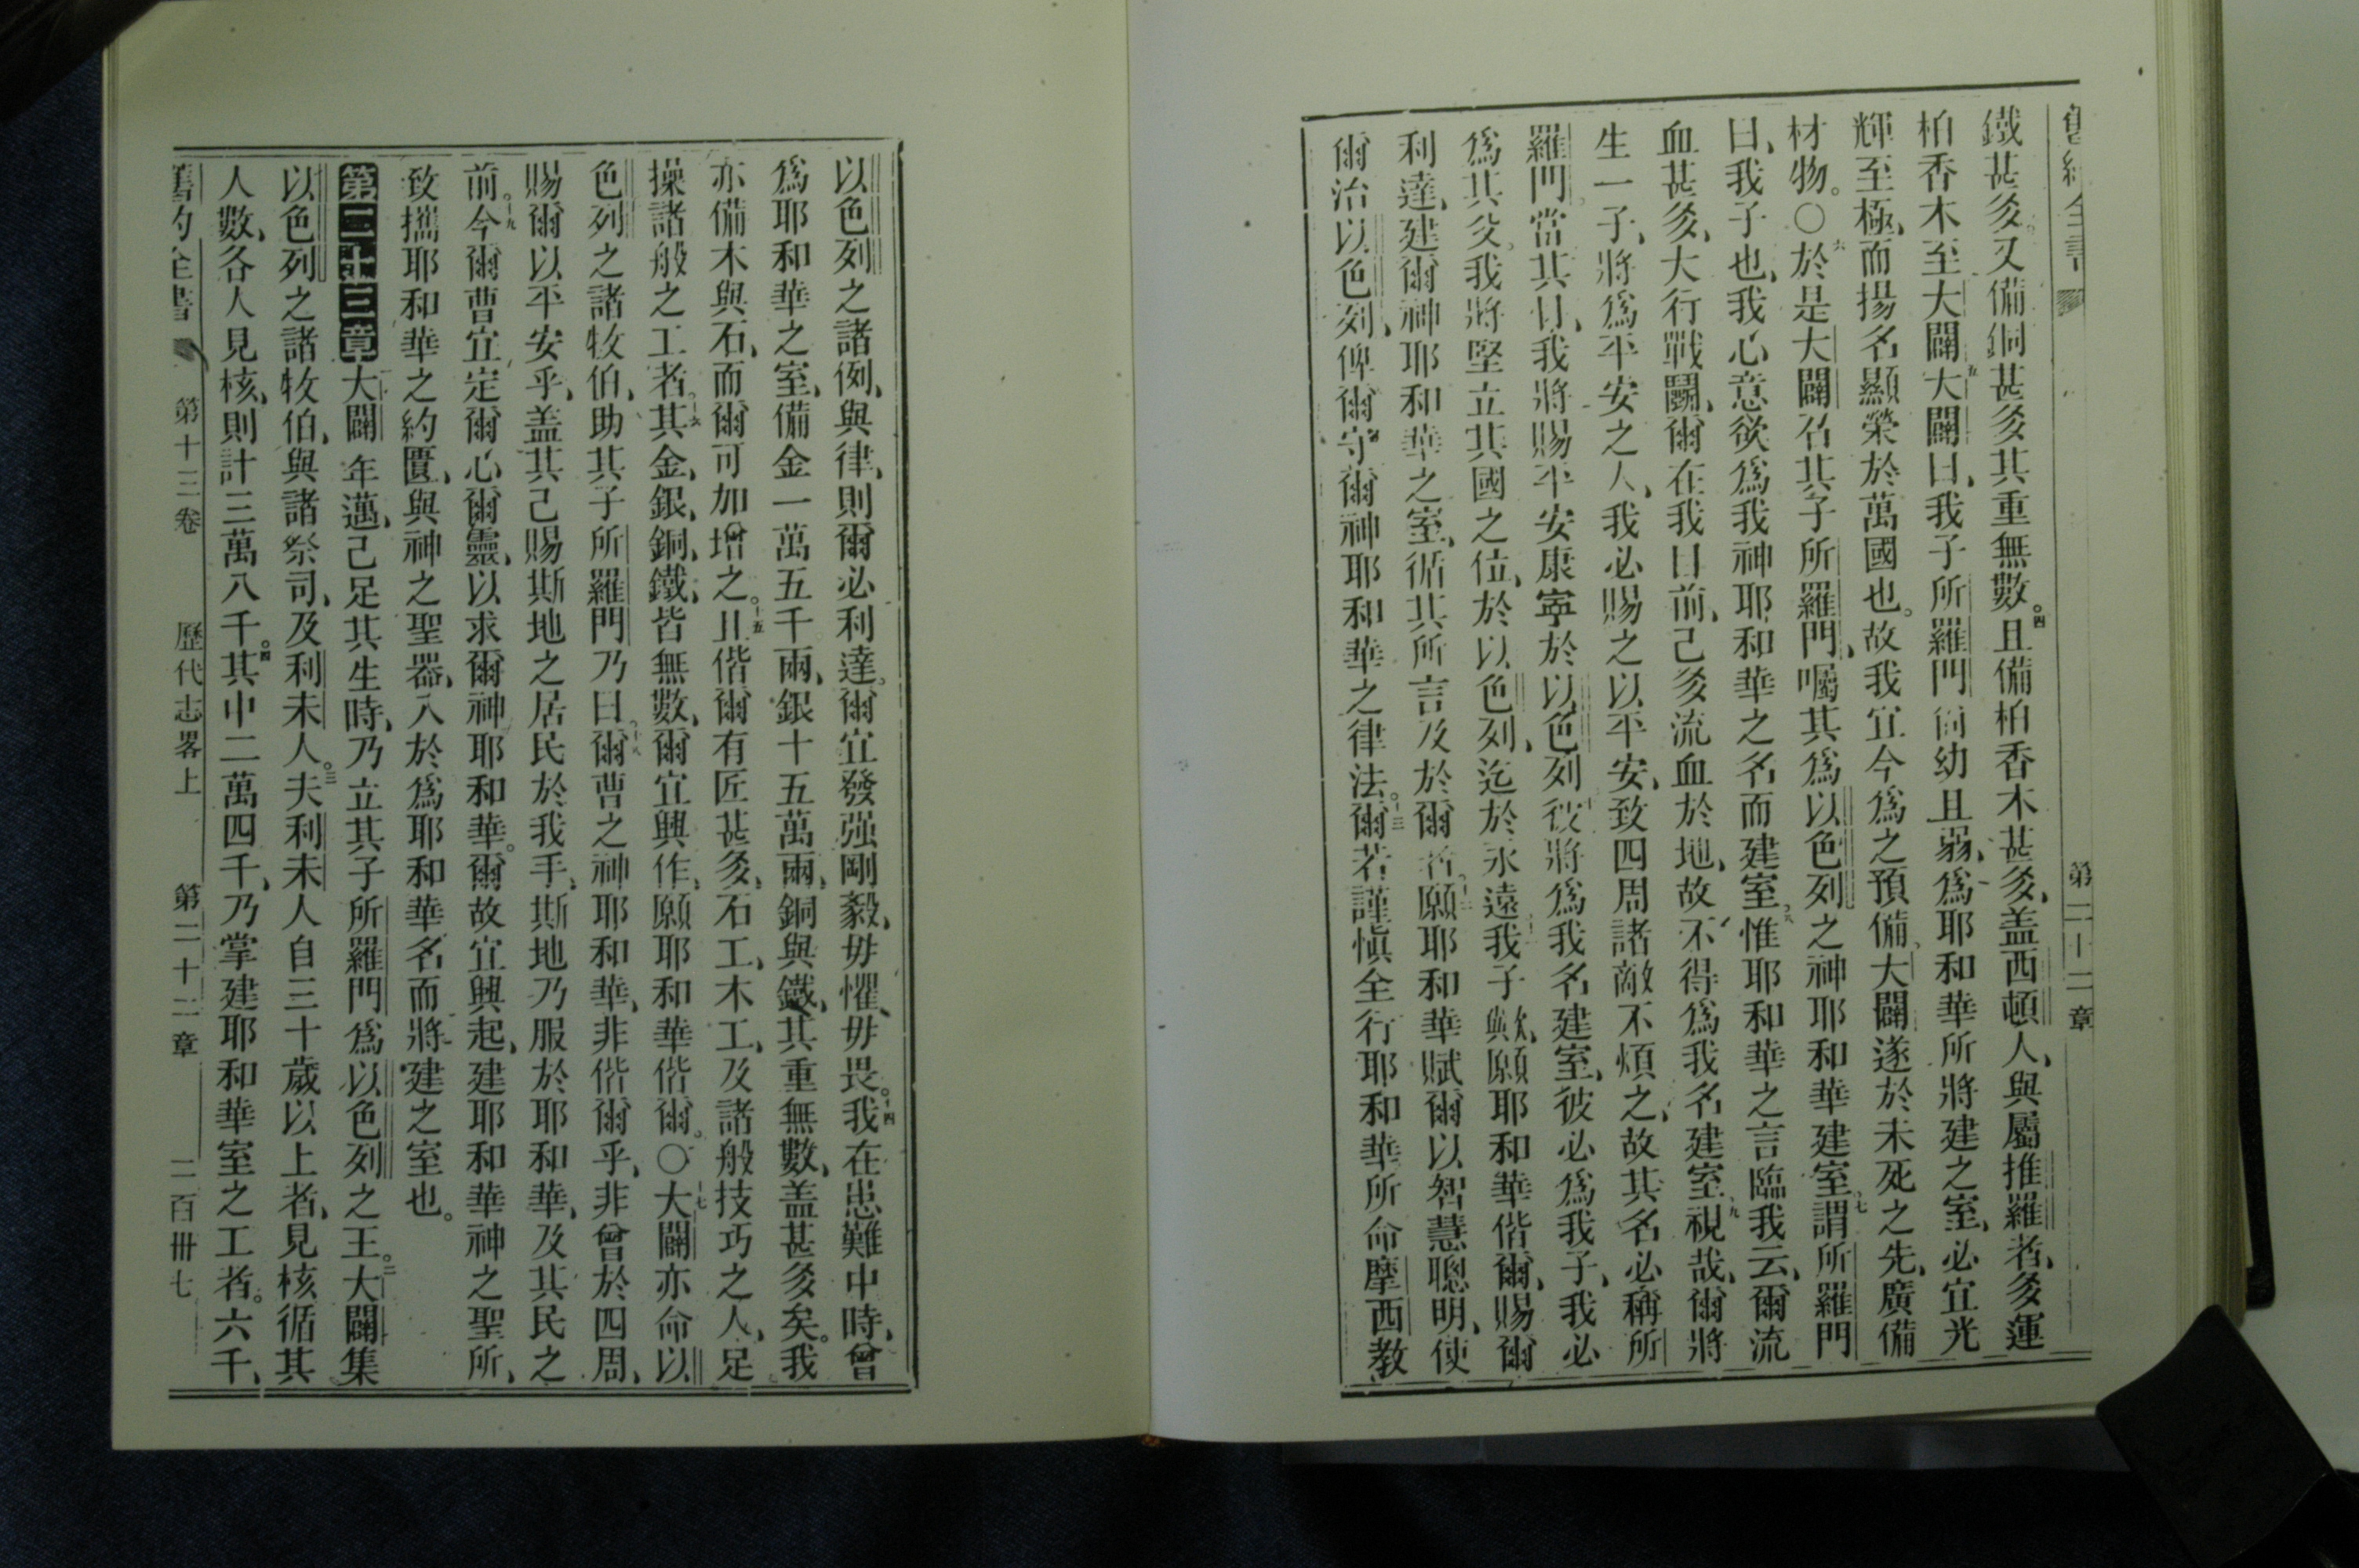 第二十二章
鐵甚多。又備銅甚多其重無數。四且備柏香木甚多、盖西頓人、與屬推羅者、多運
柏香木至大闢五大闢曰、我子所羅門尙幼且弱、爲耶和華所將建之室、必宜光
輝至極、而揚名顯榮於萬國也。故我宜今爲之預備、大闢遂於未死之先、廣備
材物。○六於是大闢召其子所羅門、囑其爲以色列之神耶和華建室、七謂所羅門
曰、我子也、我心意欲爲我神耶和華之名而建室、八惟耶和華之言臨我云、爾流
血甚多、大行戰鬭、爾在我目前、己多流血於地、故不得爲我名建室、九視哉、爾將
生一子、將爲平安之人、我必賜之以平安、致四周諸敵不煩之、故其名必稱所
羅門。當其日、我將賜平安康寧於以色列十彼將爲我名建室、彼必爲我子、我必
爲其父。我將堅立其國之位、於以色列、迄於永遠十一我子歟、願耶和華偕爾、賜爾
利達、建爾神耶和華之室、循其所言及於爾者。十二願耶和華賦爾以智慧聰明、使
爾治以色列、俾爾守爾神耶和華之律法。十三爾若謹愼全行耶和華所命摩西教
以色列之諸例、與律、則爾必利達。爾宜發强剛毅、毋懼、毋畏。十四我在患難中時、曾
爲耶和華之室、備金一萬五千兩、銀十五萬兩、銅與鐵、其重無數、盖甚多矣。我
亦備木與石、而爾可加增之。十五且偕爾有匠甚多、石工、木工、及諸般技巧之人、足
操諸般之工者。十六其金、銀、銅、鐵、皆無數、爾宜興作、願耶和華偕爾。○十七大闢亦命以
色列之諸牧伯、助其子所羅門乃曰。十八爾曹之神耶和華、非偕爾乎、非曾於四周、
賜爾以平安乎、盖其己賜斯地之居民於我手、斯地乃服於耶和華、及其民之
前。十九今爾曹宜定爾心爾靈、以求爾神耶和華。爾故宜興起、建耶和華神之聖所、
致攜耶和華之約匱、與神之聖器、入於爲耶和華名而將建之室也。
第二十三章大闢年邁、己足其生時、乃立其子所羅門爲以色列之王。二大闢集
以色列之諸牧伯、與諸祭司、及利未人。三夫利未人自三十歲以上者、見核循其
人數、各人見核、則計三萬八千。四其中二萬四千、乃掌建耶和華室之工者。六千、
舊約全書 第十三卷 歷代志畧上 第二十三章 二百卅七